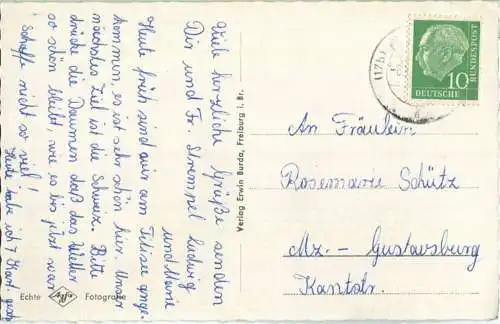 Viele herzliche Grüße senden
Dir und Fr. Strempel Ludwig
und Marie
Heute früh sind wir am Titisee ange-
kommen, es ist sehr schön hier. Unser
nächstes Ziel ist die Schweiz. Bitte
drücke die Daumen daß das Wetter
so schön bleibt, wie es bis jetzt war
Schaffe nicht so viel!
Heute habe ich 7 Kart. gesch
Echte Agfa Fotografie
Verlag Erwin Burda, Freiburg i. Br.
(17b)
10
DEUTSCHE
BUNDESPOST
An Fräulein
Rosemarie Schütz
Mz.- Gustavsburg
Kantstr.